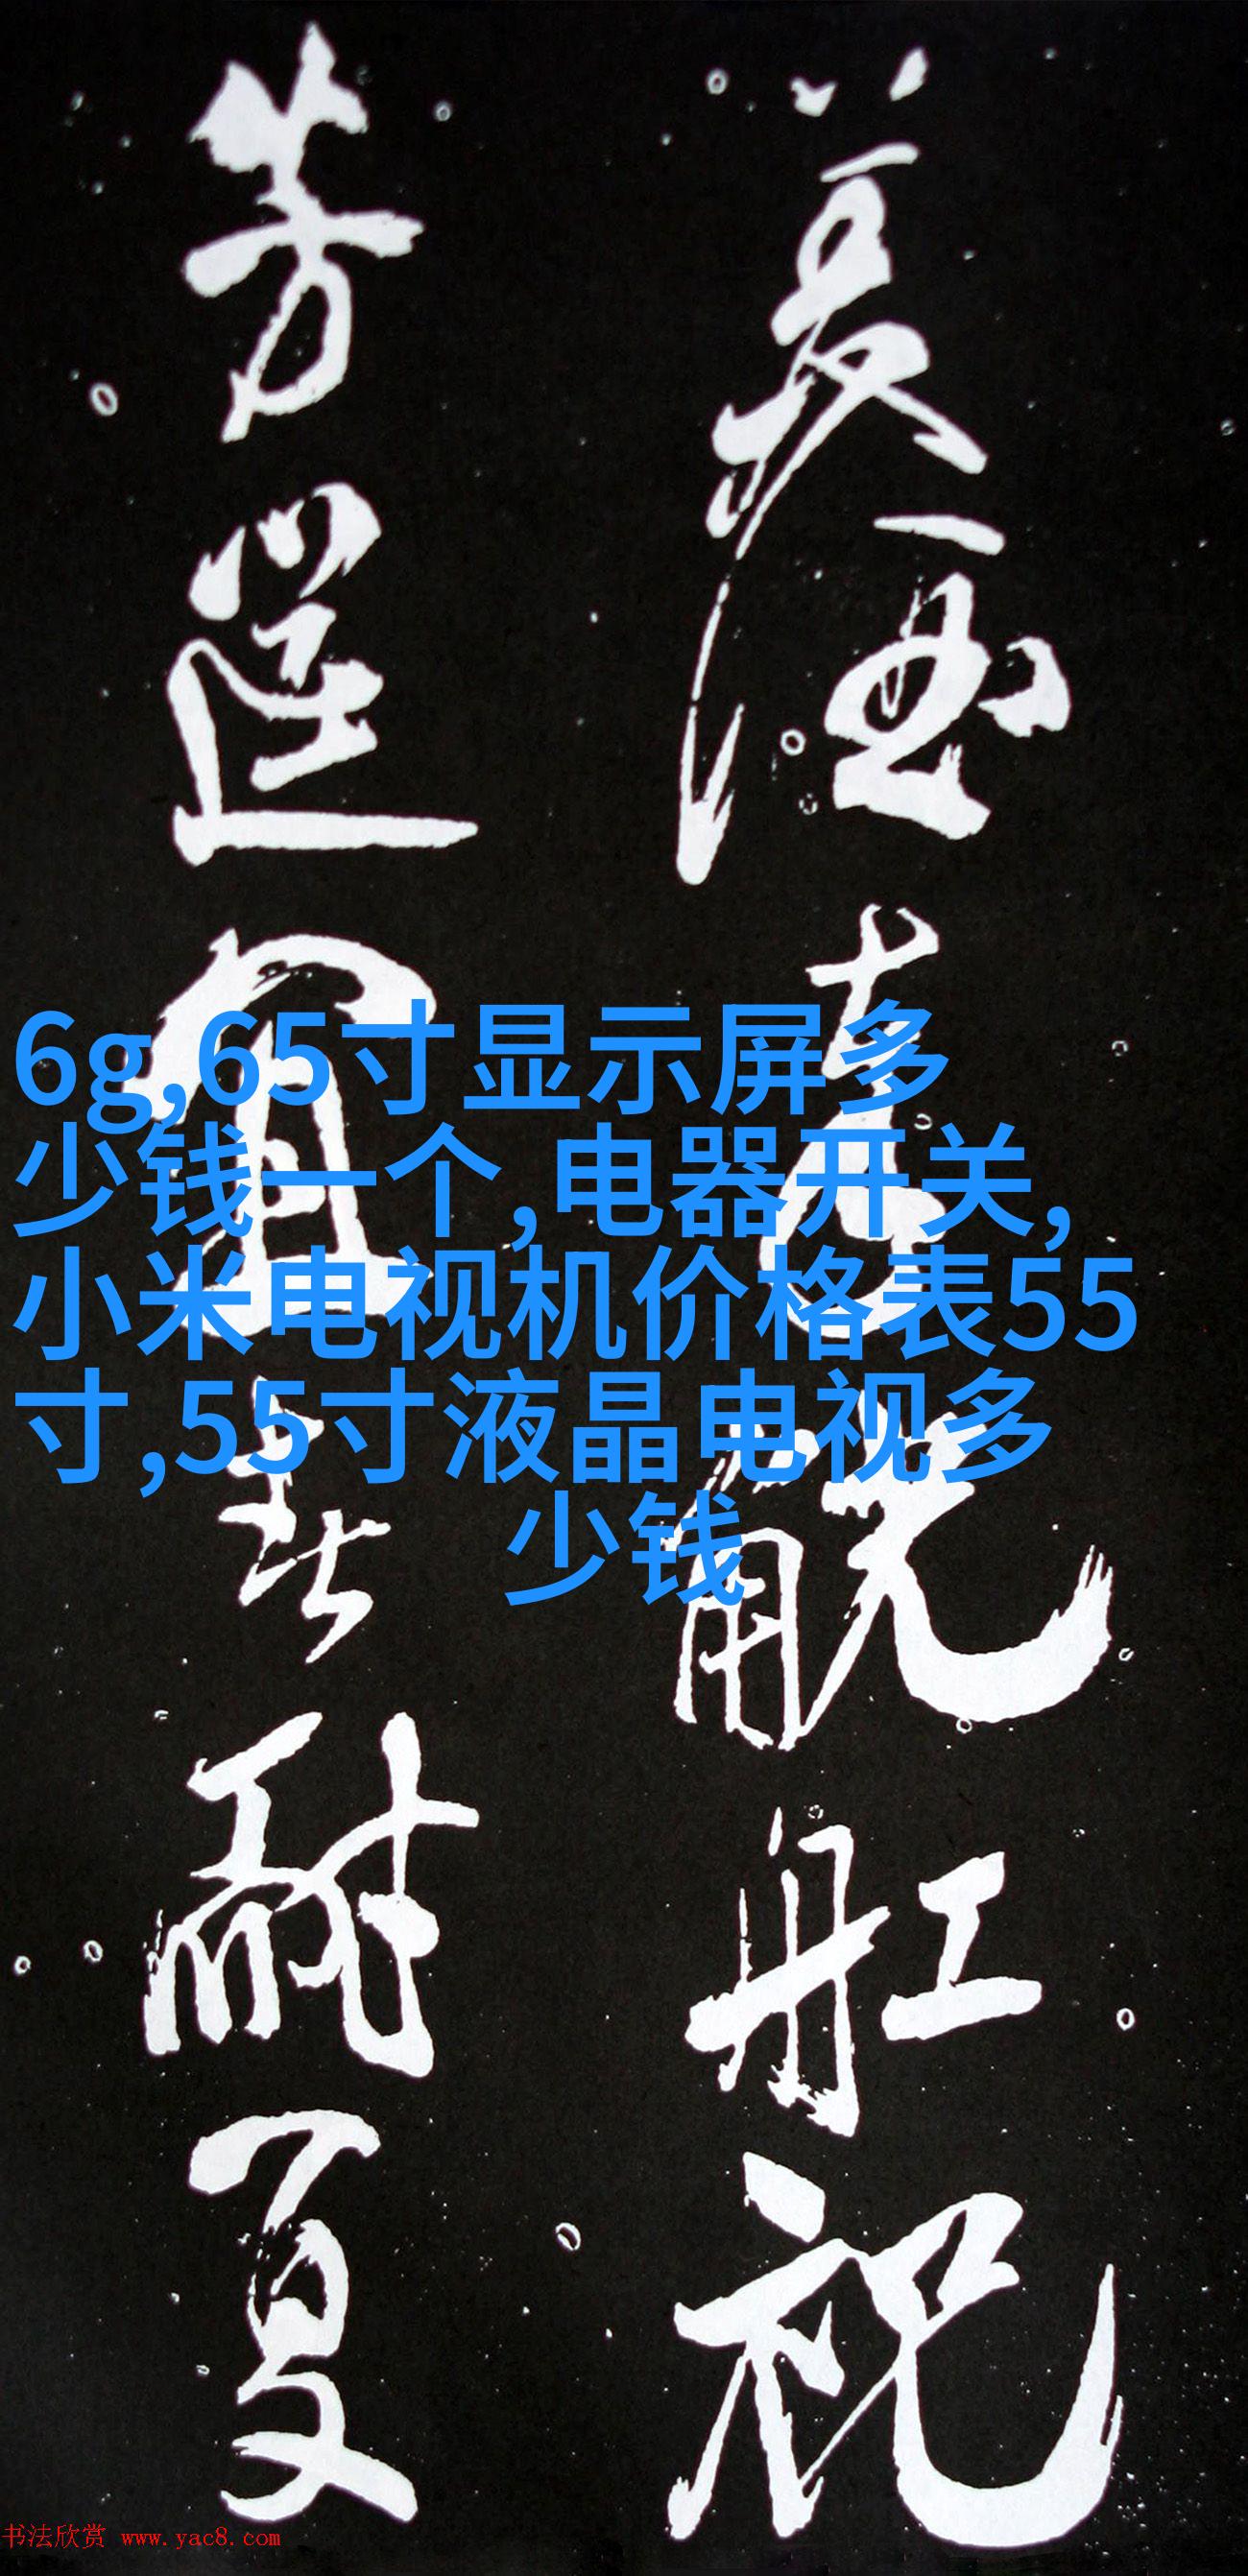 美酒觥舡祝
芳筵耐夏
6g,65寸显示屏多
少钱一个,电器开关,
小米电视机价格表55
寸,55寸液晶电视多
少钱
书法欣赏 www.yac8.com